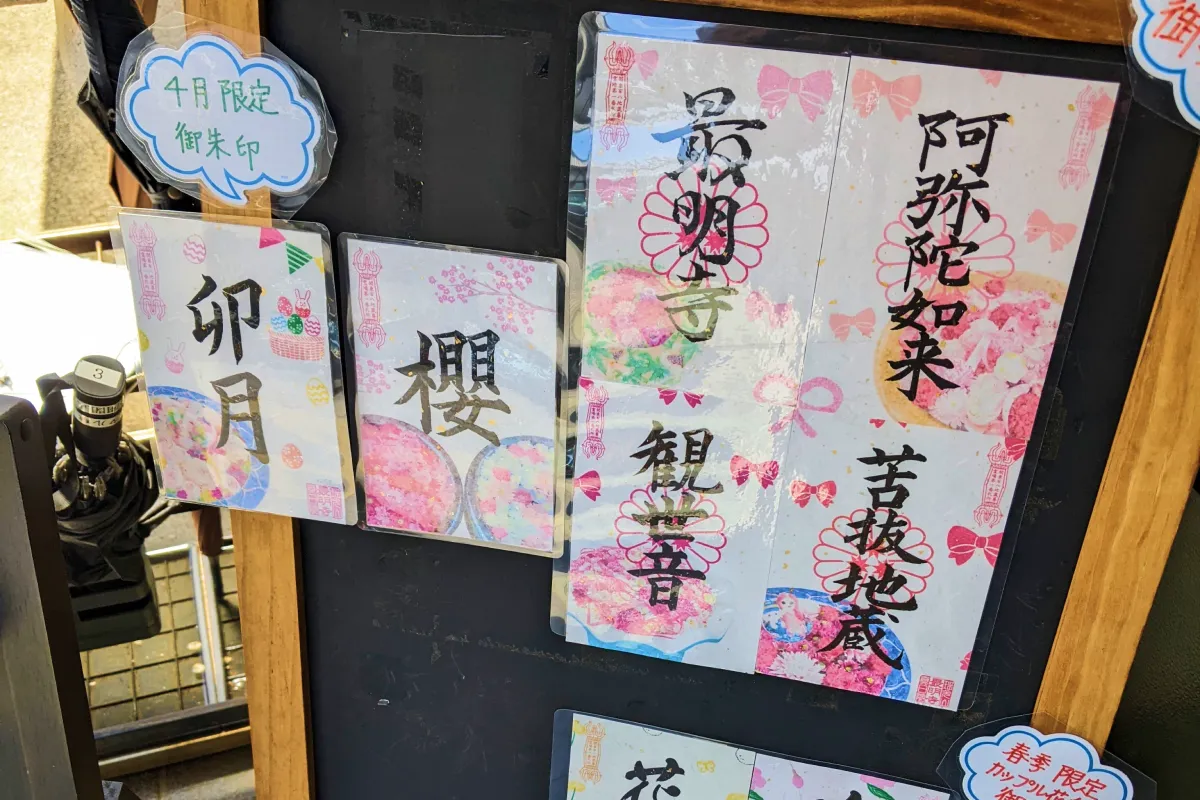 4月限定
御朱印
卯月
櫻
最明寺
阿弥陀如来
観世音
苦抜地蔵
3
御
花
春季限定
カップル花